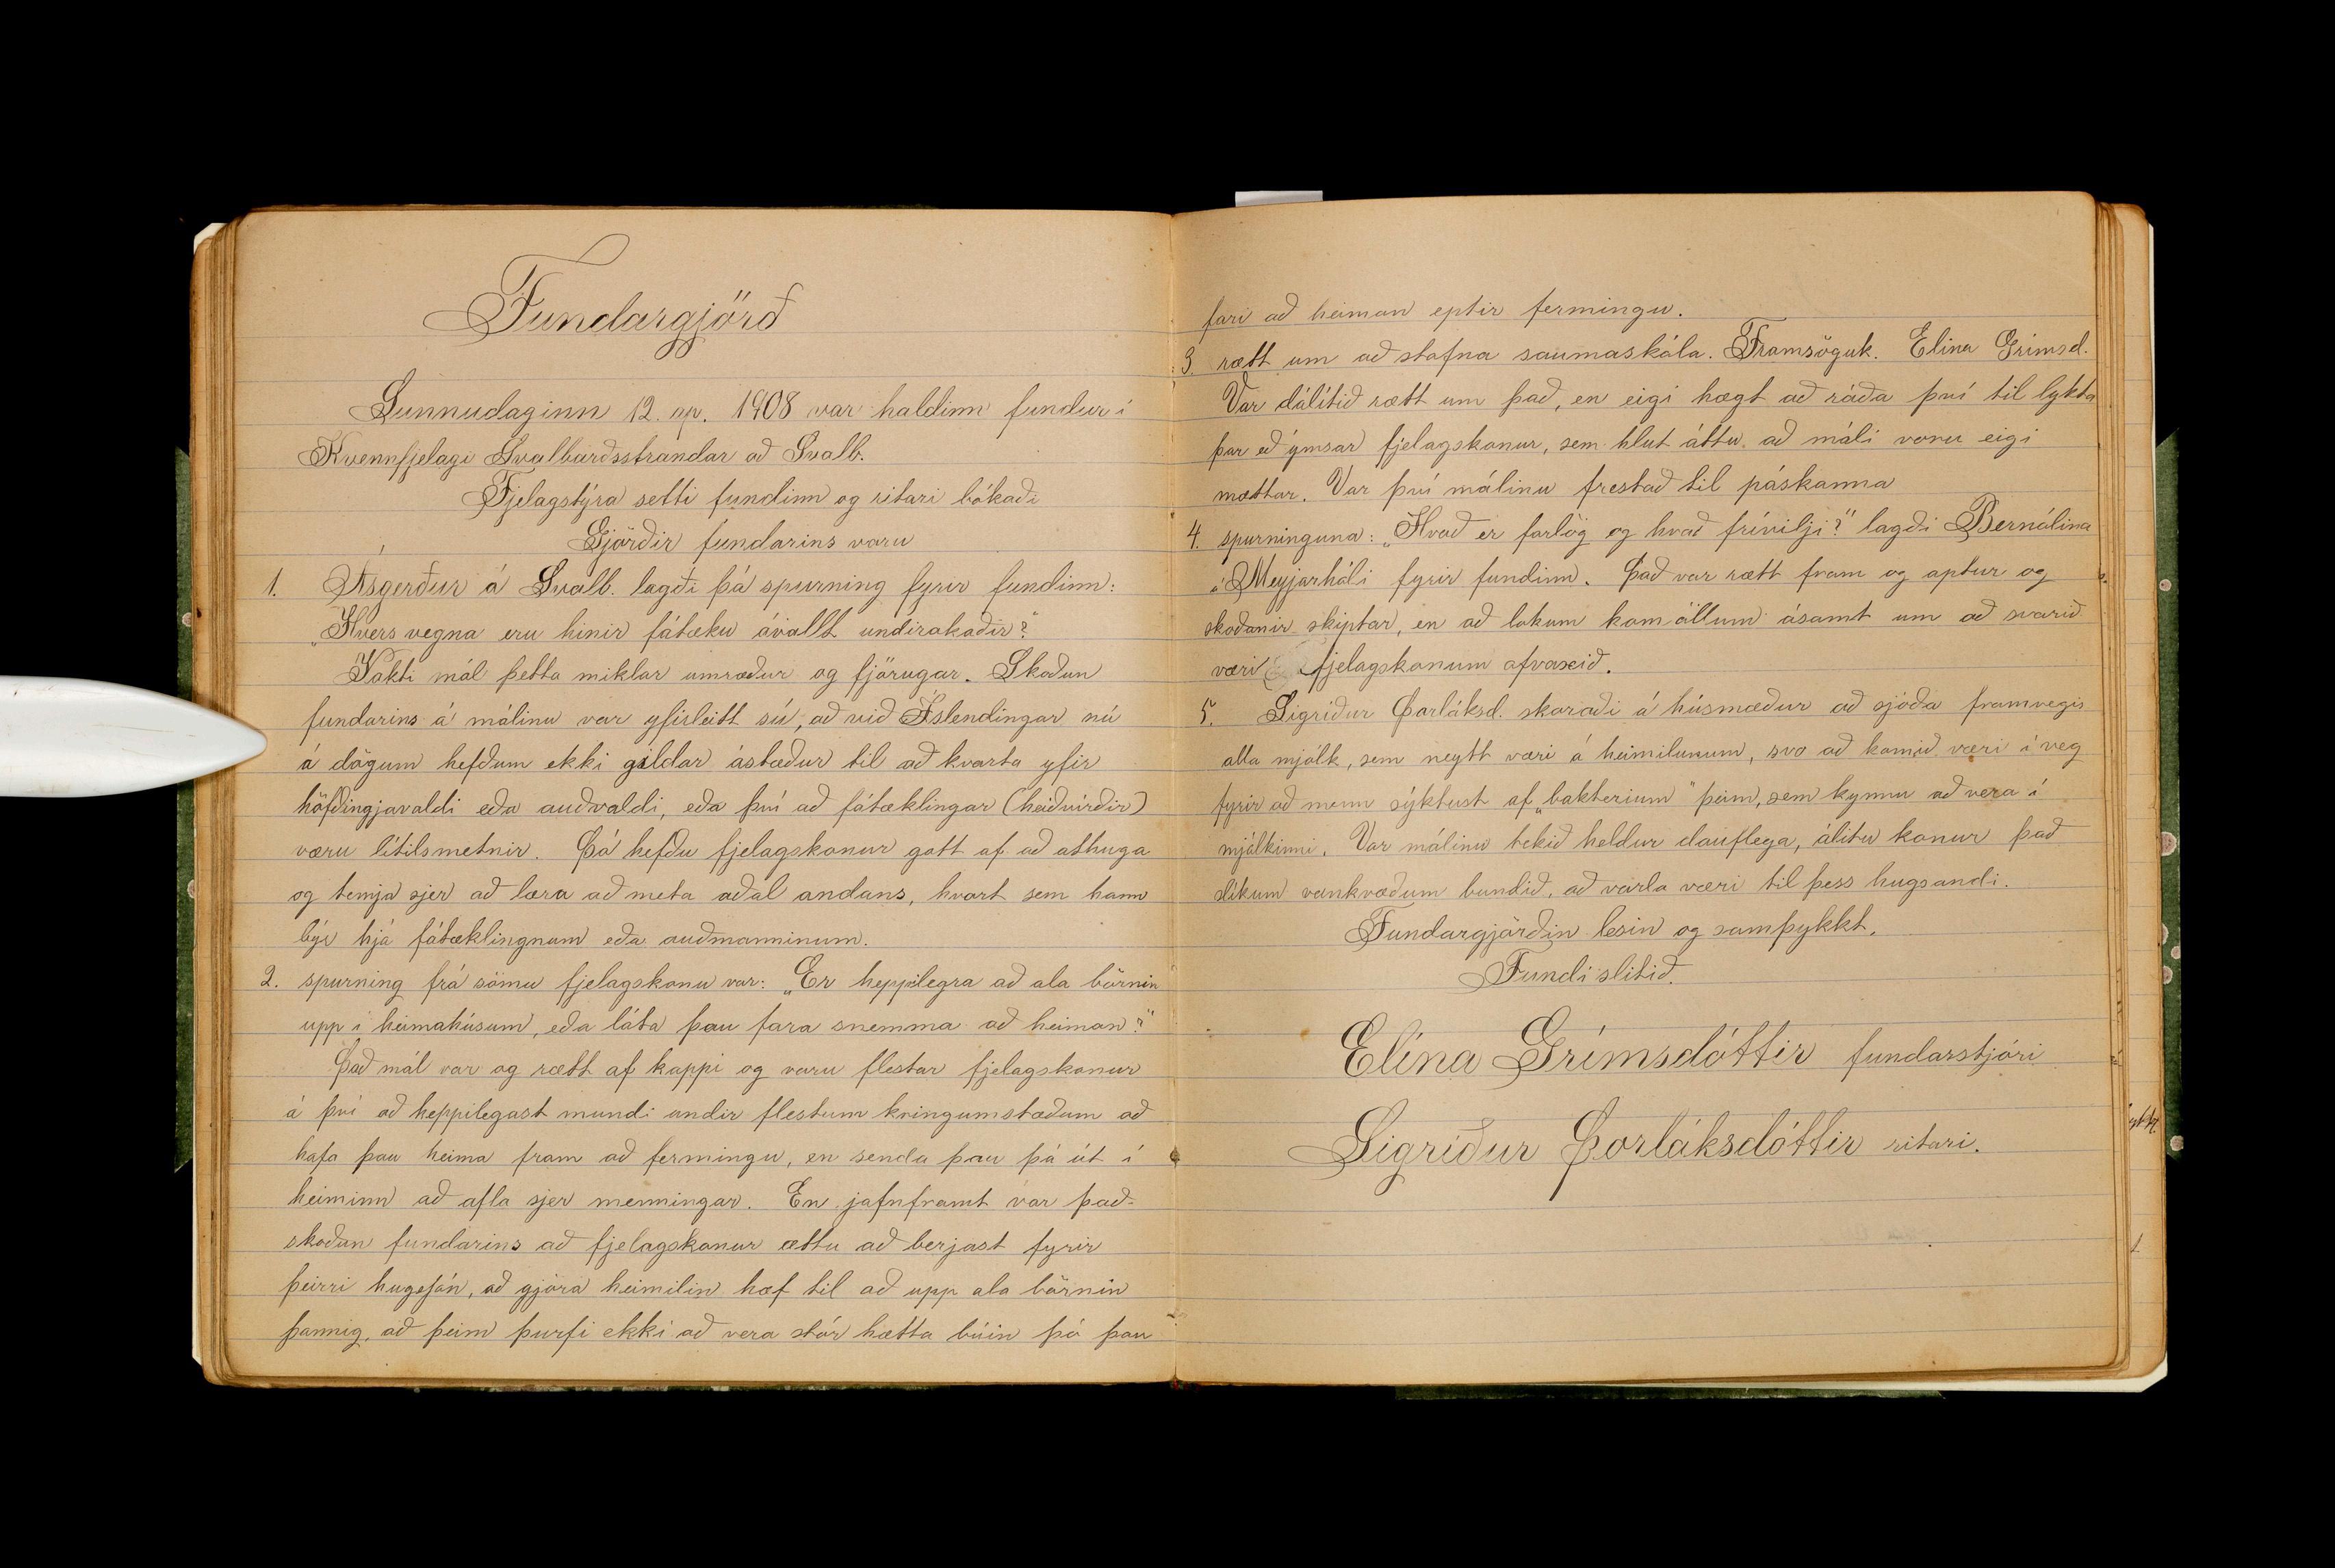 Fundargjörð
Sunnudaginn 12. ap. 1908 var haldinn fundur í
Kvennfjelagi Svalbarðsstrandar að Svalb.
Fjelagstýra setti fundinn og ritari bókaði
Gjörðir fundarins voru
1. Ásgerður á Svalb. lagði þá spurning fyrir fundinn:
„Hvers vegna eru hinir fátæku ávallt undirokaðir?"
Vakti mál þetta miklar umræður og fjörugar. Skoðun
fundarins á málinu var yfirleitt sú, að við Íslendingar nú
á dögum hefðum ekki gildar ástæður til að kvarta yfir
höfðingjavaldi eða auðvaldi, eða því að fátæklingar (heiðvirðir)
væru lítilsmetnir. Þá hefðu fjelagskonur gott af að athuga
og temja sjer að læra að meta aðal andans, hvort sem hann
býr hjá fátæklingnum eða auðmanninum.
2. spurning frá sömu fjelagskonu var: „Er heppilegra að ala börnin
upp í heimahúsum, eða láta þau fara snemma að heiman?"
Það mál var og rætt af kappi og voru flestar fjelagskonur
á því að heppilegast mundi undir flestum kringumstæðum að
hafa þau heima fram að fermingu, en senda þau þá út í
heiminn að afla sjer menningar. En jafnframt var það
skoðun fundarins að fjelagskonur ættu að berjast fyrir
þeirri hugsjón, að gjöra heimilin hæf til að upp ala börnin
þannig, að þeim þurfi ekki að vera stór hætta búin þó þau
fari að heiman eptir fermingu.
3. rætt um að stofna saumaskóla. Framsöguk. Elina Grímsd.
Var dálítið rætt um það, en eigi hægt að ráða því til lykta
þar eð ýmsar fjelagskonur, sem hlut áttu að máli voru eigi
mættar. Var því málinu frestað til páskanna
4. spurninguna: „Hvað er forlög og hvað frívilji?" lagði Bernólína
í Meyjarhóli fyrir fundinn. Það var rætt fram og aptur og
skoðanir skiptar, en að lokum kom öllum ásamt um að svarið
væri fjelagskonum ofvaxið.
5. Sigríður Þorláksd. skoraði á húsmæður að sjóða framvegis
alla mjólk, sem neytt væri á heimilunum, svo að komið væri í veg
fyrir að menn sýktust af „bakterium" þeim, sem kynnu að vera í
mjólkinni. Var málinu tekið heldur dauflega, álitu konur það
slíkum vankvæðum bundið, að varla væri til þess hugsandi.
Fundargjörðin lesin og samþykkt.
Fundi slitið.
Elína Grímsdóttir fundarstjóri
Sigríður Þorláksdóttir ritari.